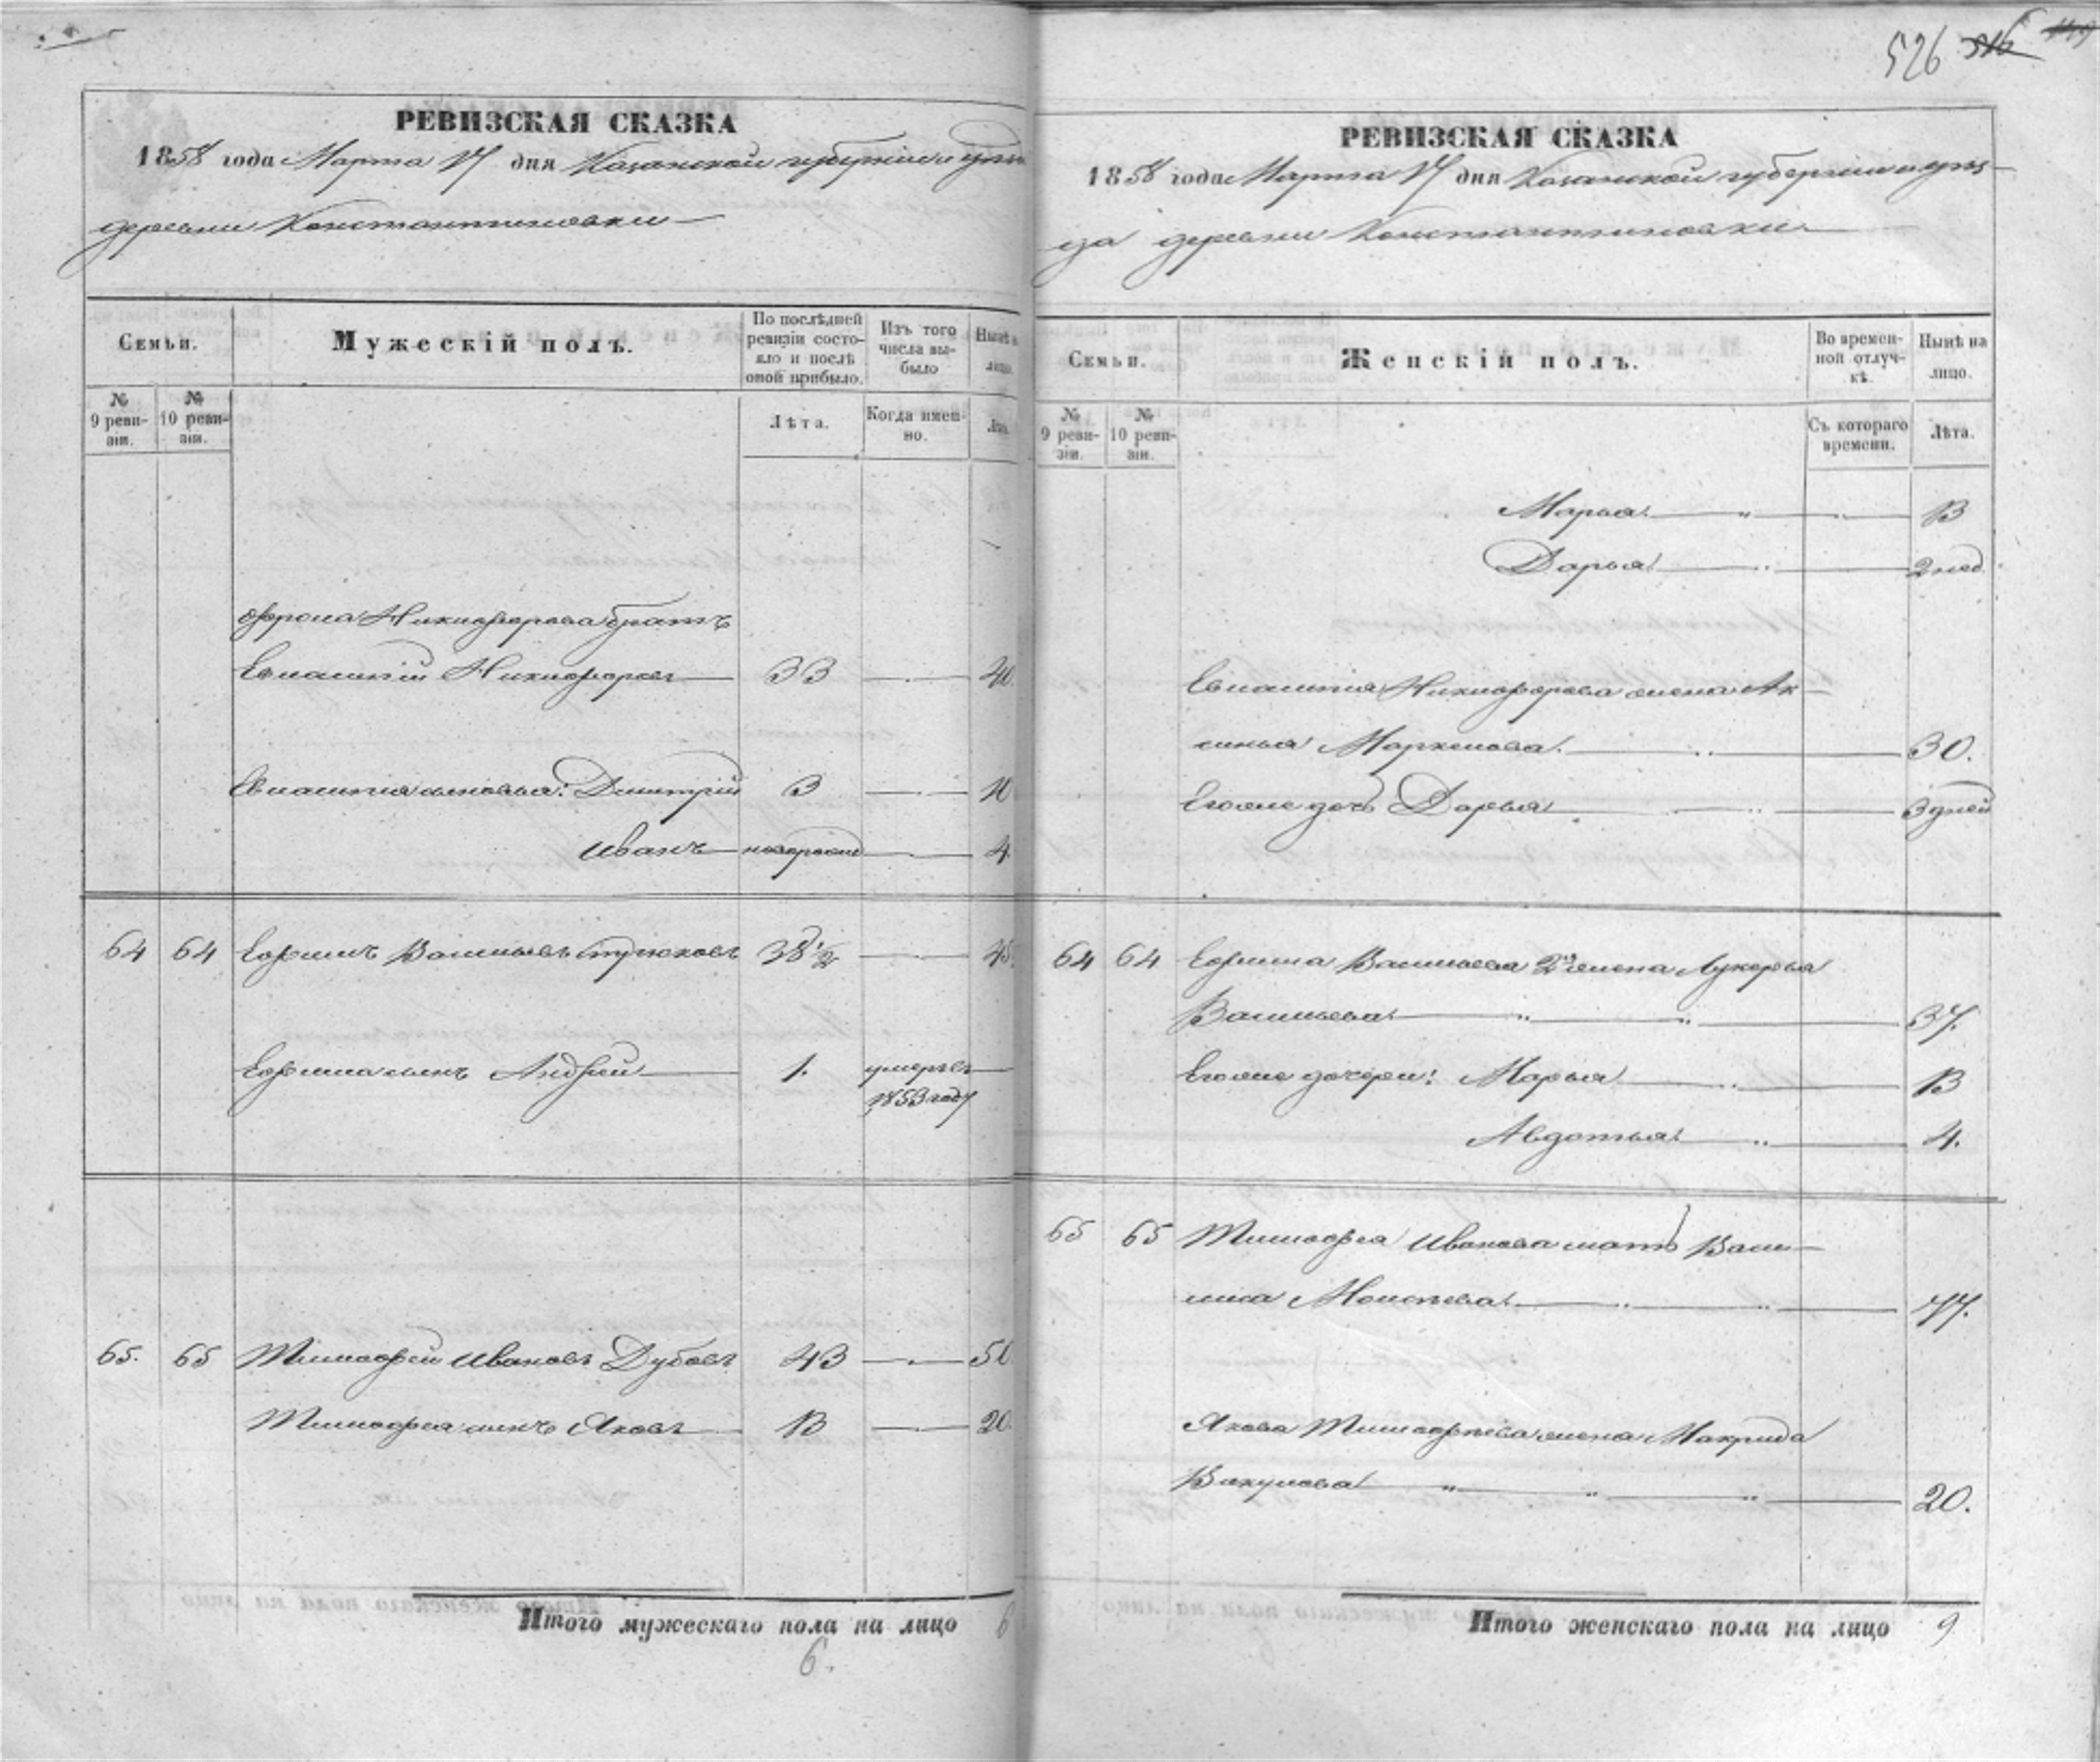 526
РЕВИЗСКАЯ СКАЗКА
1858 года Марта 17 дня Казанской губерніи и уѣзда
деревни Константиновки
Семьи.
Мужескій полъ.
По послѣдней ревизіи состояло и послѣ оной прибыло.
Изъ того числа выбыло
Нынѣ на лицо.
№ 9 ревизіи.
№ 10 ревизіи.
Лѣта.
Когда именно.
Лѣта.
Фрола Никифорова братъ
Евпатій Никифоровъ 33 — 40.
Евпатія сыновья: Дмитрій 3 — 10
Иванъ новорожд — 4.
64 64 Ефимъ Васильевъ 38 1/2 — 45.
Ефима сынъ Андрей 1. умеръ
1853 году
65. 65 Тимофей Ивановъ Дубовъ 43 — 50
Тимофея сынъ Яковъ 13 — 20.
Итого мужескаго пола на лицо 6
6.
РЕВИЗСКАЯ СКАЗКА
1858 года Марта 17 дня Казанской губерніи и уѣз-
да деревни Константиновки
Семьи.
Женскій полъ.
Во временной отлучкѣ.
Нынѣ на лицо.
№ 9 ревизіи.
№ 10 ревизіи.
Съ котораго времени.
Лѣта.
Марья 13
Дарья 2 нед
Евпатія Никифорова жена Ак-
синья 30.
Его же дочь Дарья 3 дней
64 64 Ефима Васильева 2я жена Лукерья
Васильева 37.
Его же дочери: Марья 13
Авдотья 4.
65 65 Тимофея Иванова мать Васи-
лиса Моисеева 77.
Якова Тимофѣева жена Макрида
Викулова 20.
Итого женскаго пола на лицо 9